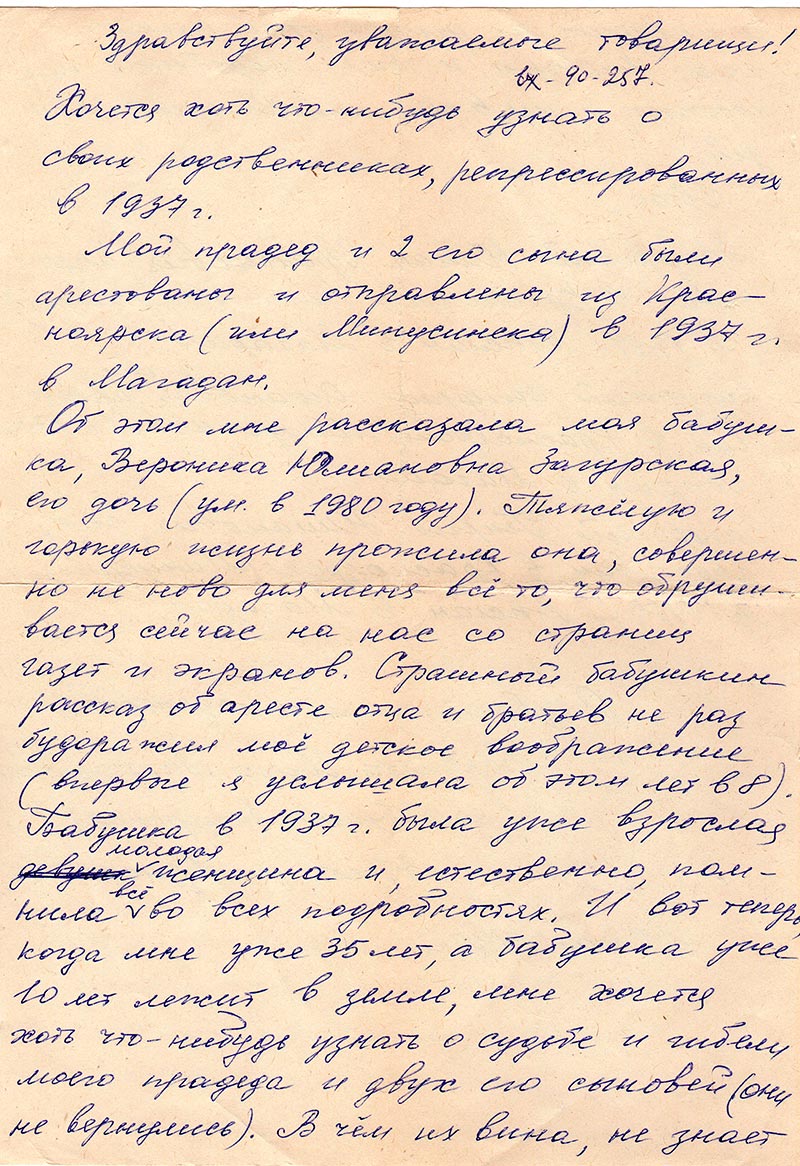 Здравствуйте, уважаемые товарищи!
вх-90-257.
Хочется хоть что-нибудь узнать о
своих родственниках, репрессированных
в 1937 г.
Мой прадед и 2 его сына были
арестованы и отправлены из Крас-
ноярска (или Минусинска) в 1937 г.
в Магадан.
Об этом мне рассказала моя бабуш-
ка, Вероника Юлиановна Загурская,
его дочь (ум. в 1980 году). Тяжёлую и
горькую жизнь прожила она, совершен-
но не ново для меня всё то, что обруши-
вается сейчас на нас со страниц
газет и экранов. Страшный бабушкин
рассказ об аресте отца и братьев не раз
будоражил моё детское воображение
(впервые я услышала об этом лет в 8).
Бабушка в 1937 г. была уже взрослая
молодая
женщина и, естественно, пом-
всё
нила во всех подробностях. И вот теперь,
когда мне уже 35 лет, а бабушка уже
10 лет лежит в земле, мне хочется
хоть что-нибудь узнать о судьбе и гибели
моего прадеда и двух его сыновей (они
не вернулись). В чём их вина, не знает